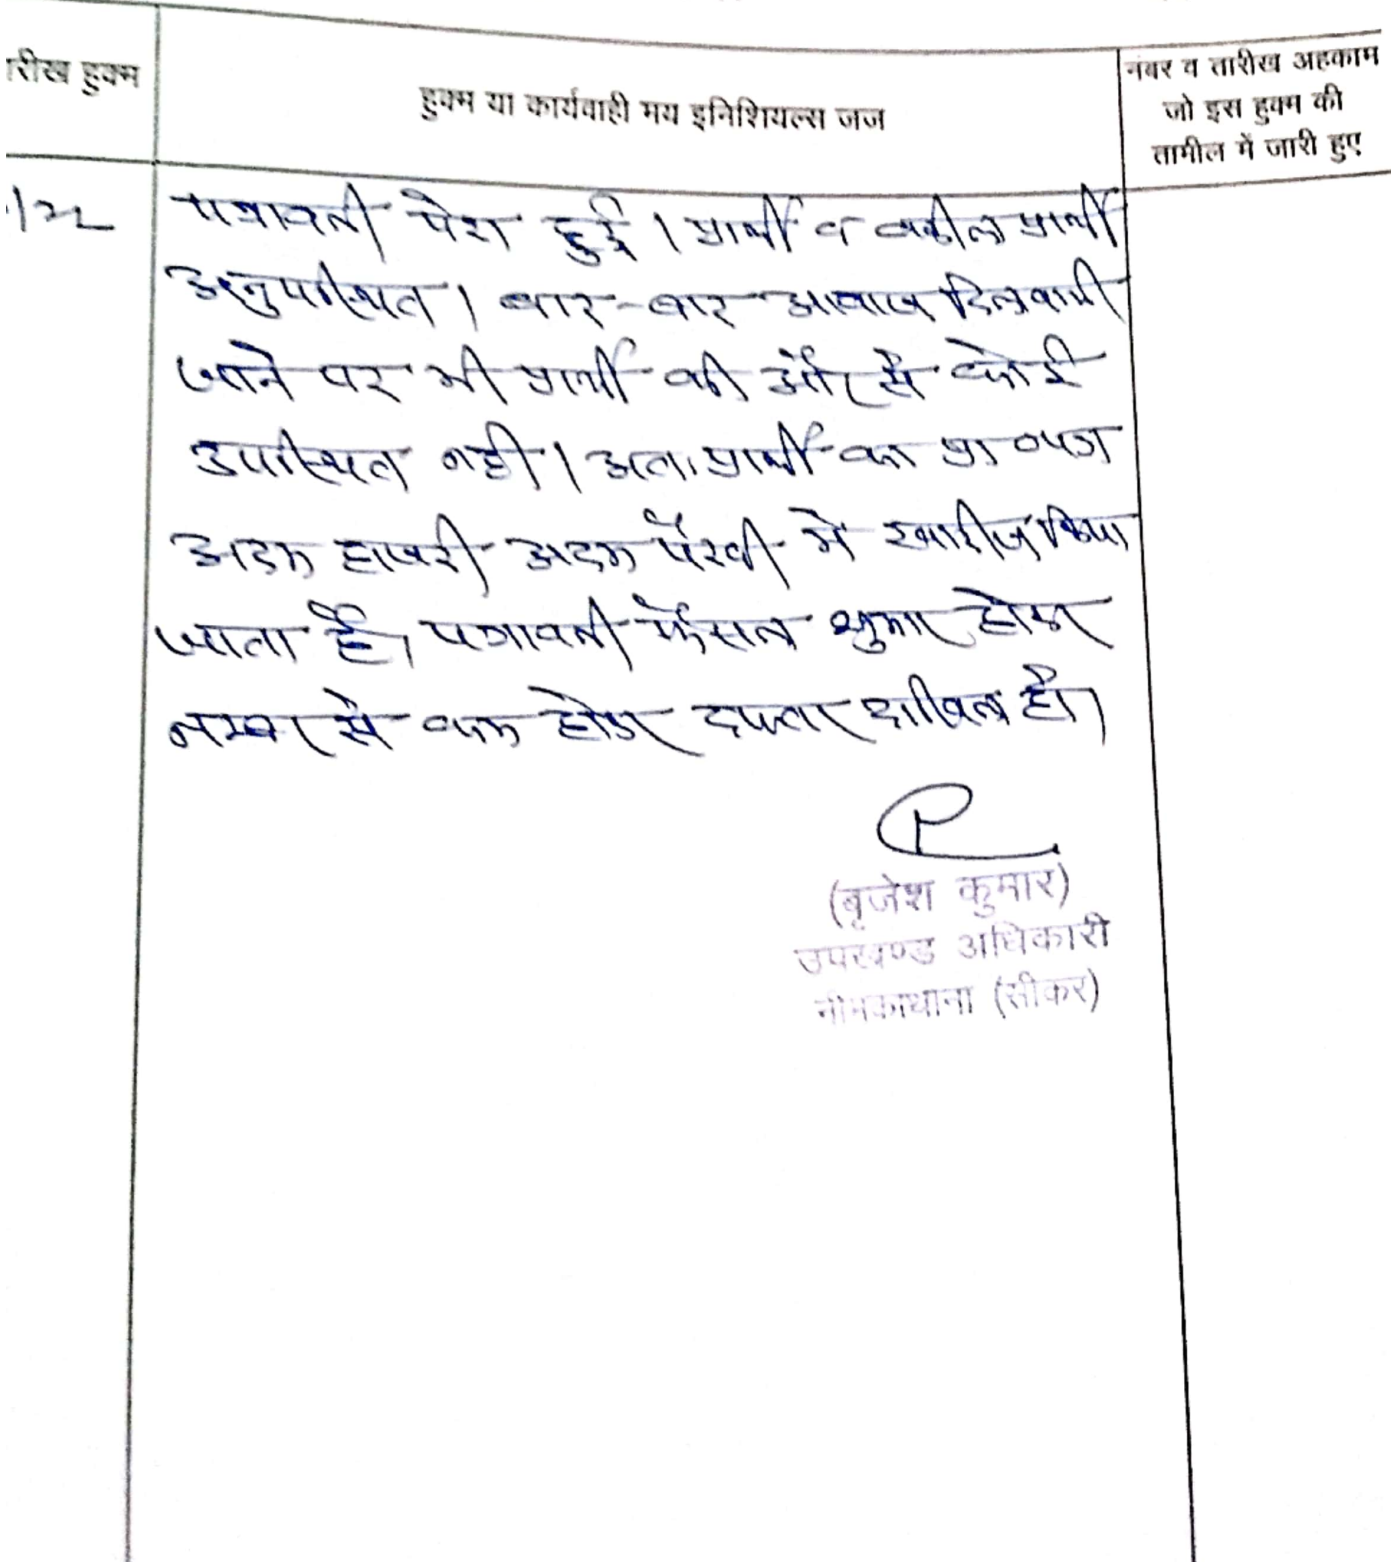 तारीख हुक्म
हुक्म या कार्यवाही मय इनिशियल्स जज
नंबर व तारीख अहकाम
जो इस हुक्म की
तामील में जारी हुए
पत्रावली पेश हुई। प्रार्थी व वकील प्रार्थी
अनुपस्थित। बार-बार आवाज दिलवायी
जाने पर भी प्रार्थी की और से कोई
उपस्थित नही। अतः प्रार्थी का प्रा०पत्र
अदम हाजरी अदम पैरवी मे खारीज किया
जाता है, पत्रावली फैसल शुमार होकर
नम्बर से कम होकर दफ्तर दाखिल हो।
(बृजेश कुमार)
उपखण्ड अधिकारी
नीमकाथाना (सीकर)